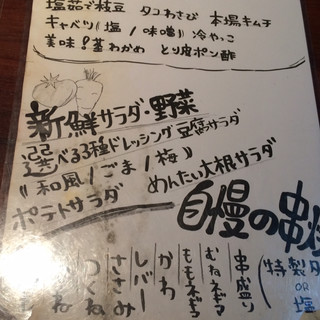 塩茹で枝豆 タコわさび 本場キムチ
キャベツ(塩/味噌) 冷やっこ
美味!茎わかめ とり皮ポン酢
新鮮サラダ・野菜
選べる3種ドレッシング豆腐サラダ
《和風/ごま/梅》 めんたい大根サラダ
ポテトサラダ
自慢の串
(特製タ
OR
塩
串盛り
むねネギマ
ももネギマ
かわ
レバー
ささみ
つくね